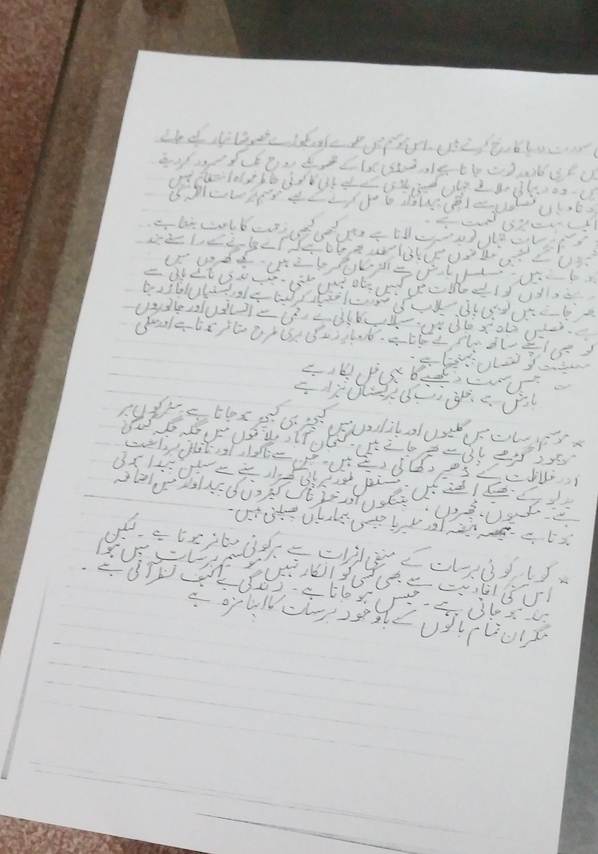 صورت دریا کا رخ کرتے ہیں۔ اس موسم میں جھولے اور پکوڑے خصوصاً تیار کیے جاتے
گرمی کا زور ٹوٹ جاتا ہے اور ٹھنڈی ہوا کے جھونکے روح تک کو مسرور کر دیتے
ہیں۔ وہ دیہاتی علاقے جہاں کھیتی باڑی کے لیے پانی کا کوئی خاطر خواہ انتظام نہیں
ہوتا وہاں فصلوں سے اچھی پیداوار حاصل کرنے کے لیے موسم برسات اللہ کی
ایک بہت بڑی نعمت ہے۔
موسم برسات جہاں نوید مسرت لاتا ہے وہیں کبھی کبھی زحمت کا باعث بنتا ہے۔
شہروں کے نشیبی علاقوں میں پانی اسقدر بھر جاتا ہے کہ آنے جانے کے راستے بند
ہو جاتے ہیں۔ مسلسل بارش سے اکثر مکان گر جاتے ہیں۔ کچے گھروں میں
رہنے والوں کو ایسے حالات میں کہیں پناہ نہیں ملتی۔ جب ندی نالے پانی سے
بھر جاتے ہیں تو یہی پانی سیلاب کی صورت اختیار کر لیتا ہے اور بستیاں اجاڑ دیتا
ہے۔ فصلیں تباہ ہو جاتی ہیں۔ سیلاب کا پانی بے رحمی سے انسانوں اور جانوروں
کو بھی اپنے ساتھ بہا کر لے جاتا ہے۔ کاروبار زندگی بری طرح متاثر ہوتا ہے اور ملکی
معیشت کو نقصان پہنچتا ہے۔
جس سمت دیکھئے گا یہی غل پکار ہے
بارش ہے خلق رب کی پریشاں ہزار ہے
* موسم برسات میں گلیوں اور بازاروں میں کیچڑ ہی کیچڑ ہو جاتا ہے سڑکوں پر
موجود گڑھے پانی سے بھر جاتے ہیں۔ گنجان آباد علاقوں میں جگہ جگہ گندگی
اور غلاظت کے ڈھیر دکھائی دیتے ہیں۔ جن سے ناگوار اور ناقابل برداشت
بدبو کے بھبکے اٹھتے ہیں۔ مستقل طور پر پانی کھڑا رہنے سے سیلن پیدا ہوتی
ہے۔ مکھیوں، مچھروں، پتنگوں اور خطرناک کیڑوں کی پیداوار میں اضافہ
ہوتا ہے ہیضہ اور ملیریا جیسی بیماریاں پھیلتی ہیں۔
* گویا ہر کوئی برسات کے منفی اثرات سے ہر کوئی متاثر ہوتا ہے۔ لیکن
اس کی افادیت سے بھی کسی کو انکار نہیں موسم برسات میں ہوا
بند ہو جاتی ہے۔ حبس ہو جاتا ہے۔ زندگی بے کیف نظر آتی ہے۔
مگر ان تمام باتوں کے باوجود برسات کا اپنا مزہ ہے